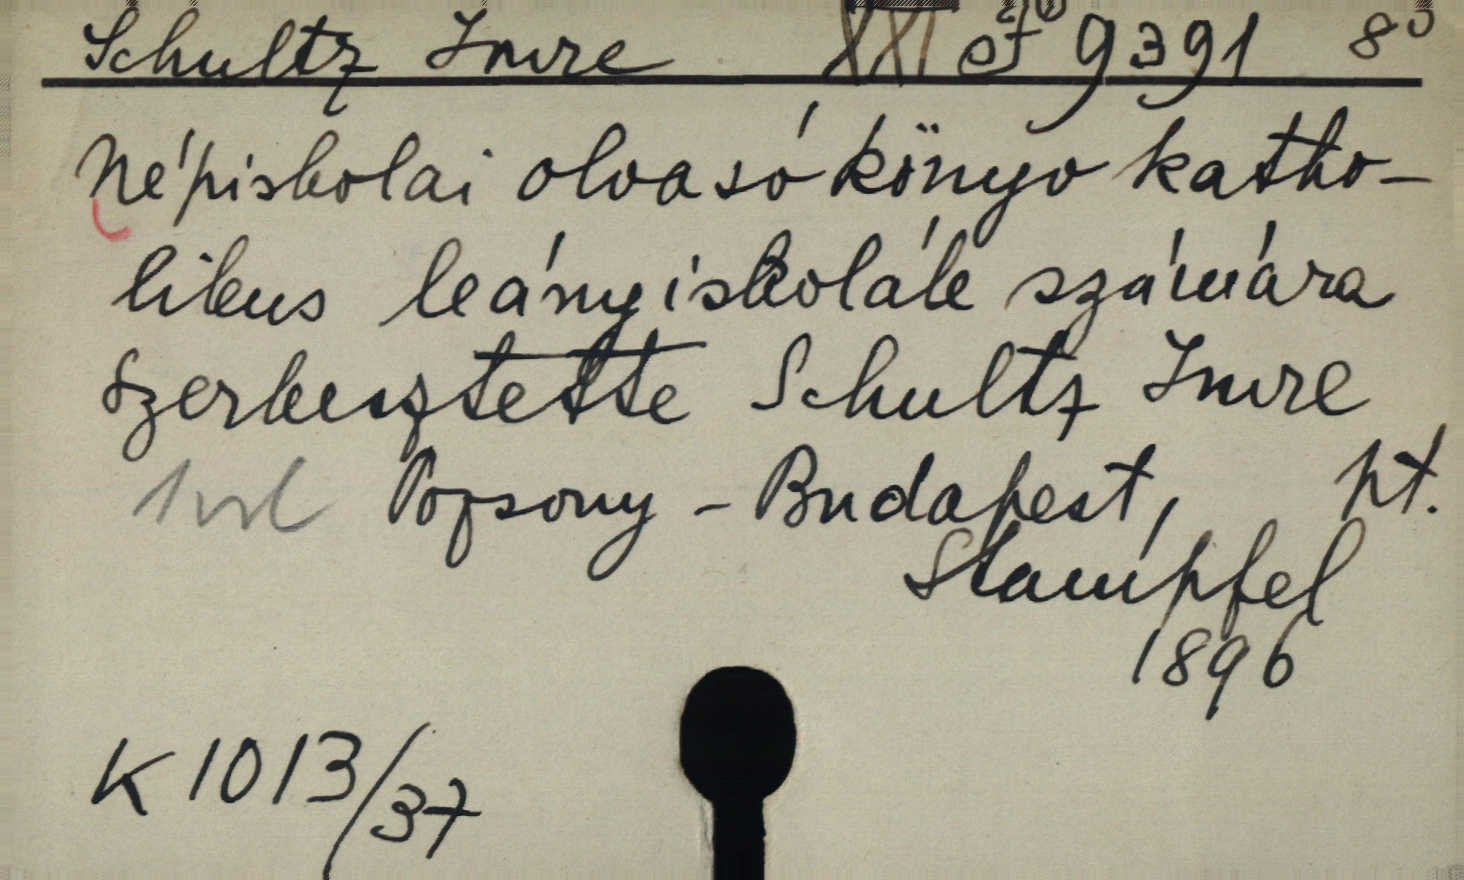 Schultz Imre XXI 9391 8°
Népiskolai olvasókönyv katho-
likus leányiskolák számára
Szerkesztette Schultz Imre
Pozsony - Budapest, pt.
Stampfel
1896
K 1013/37